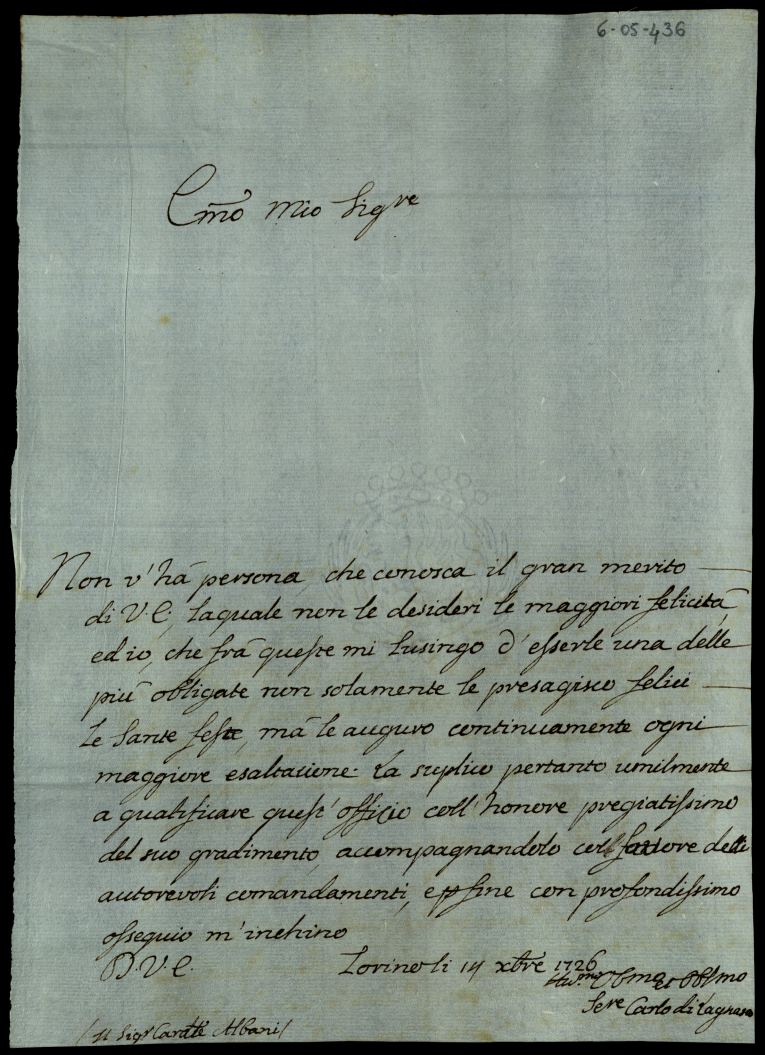 6-05-436
Emo Mio Sigre
Non v'hà persona, che conosca il gran merito
di V. E., laquale non le desideri le maggiori felicità,
ed io, che frà queste mi lusingo d'esserle una delle
più obligate non solamente le presagisco felici
le Sante feste, mà le auguro continuamente ogni
maggiore esaltazione. La suplico pertanto umilmente
a qualificare quest'officio coll'honore pregiatissimo
del suo gradimento, accompagnandolo coll'favore delle
autorevoli comandamenti, e per fine con profondissimo
ossequio m'inchino
D. V. E. Torino li 14 xbre 1726
Obmo
Sere Carlo di
Sigr Cardle Albani